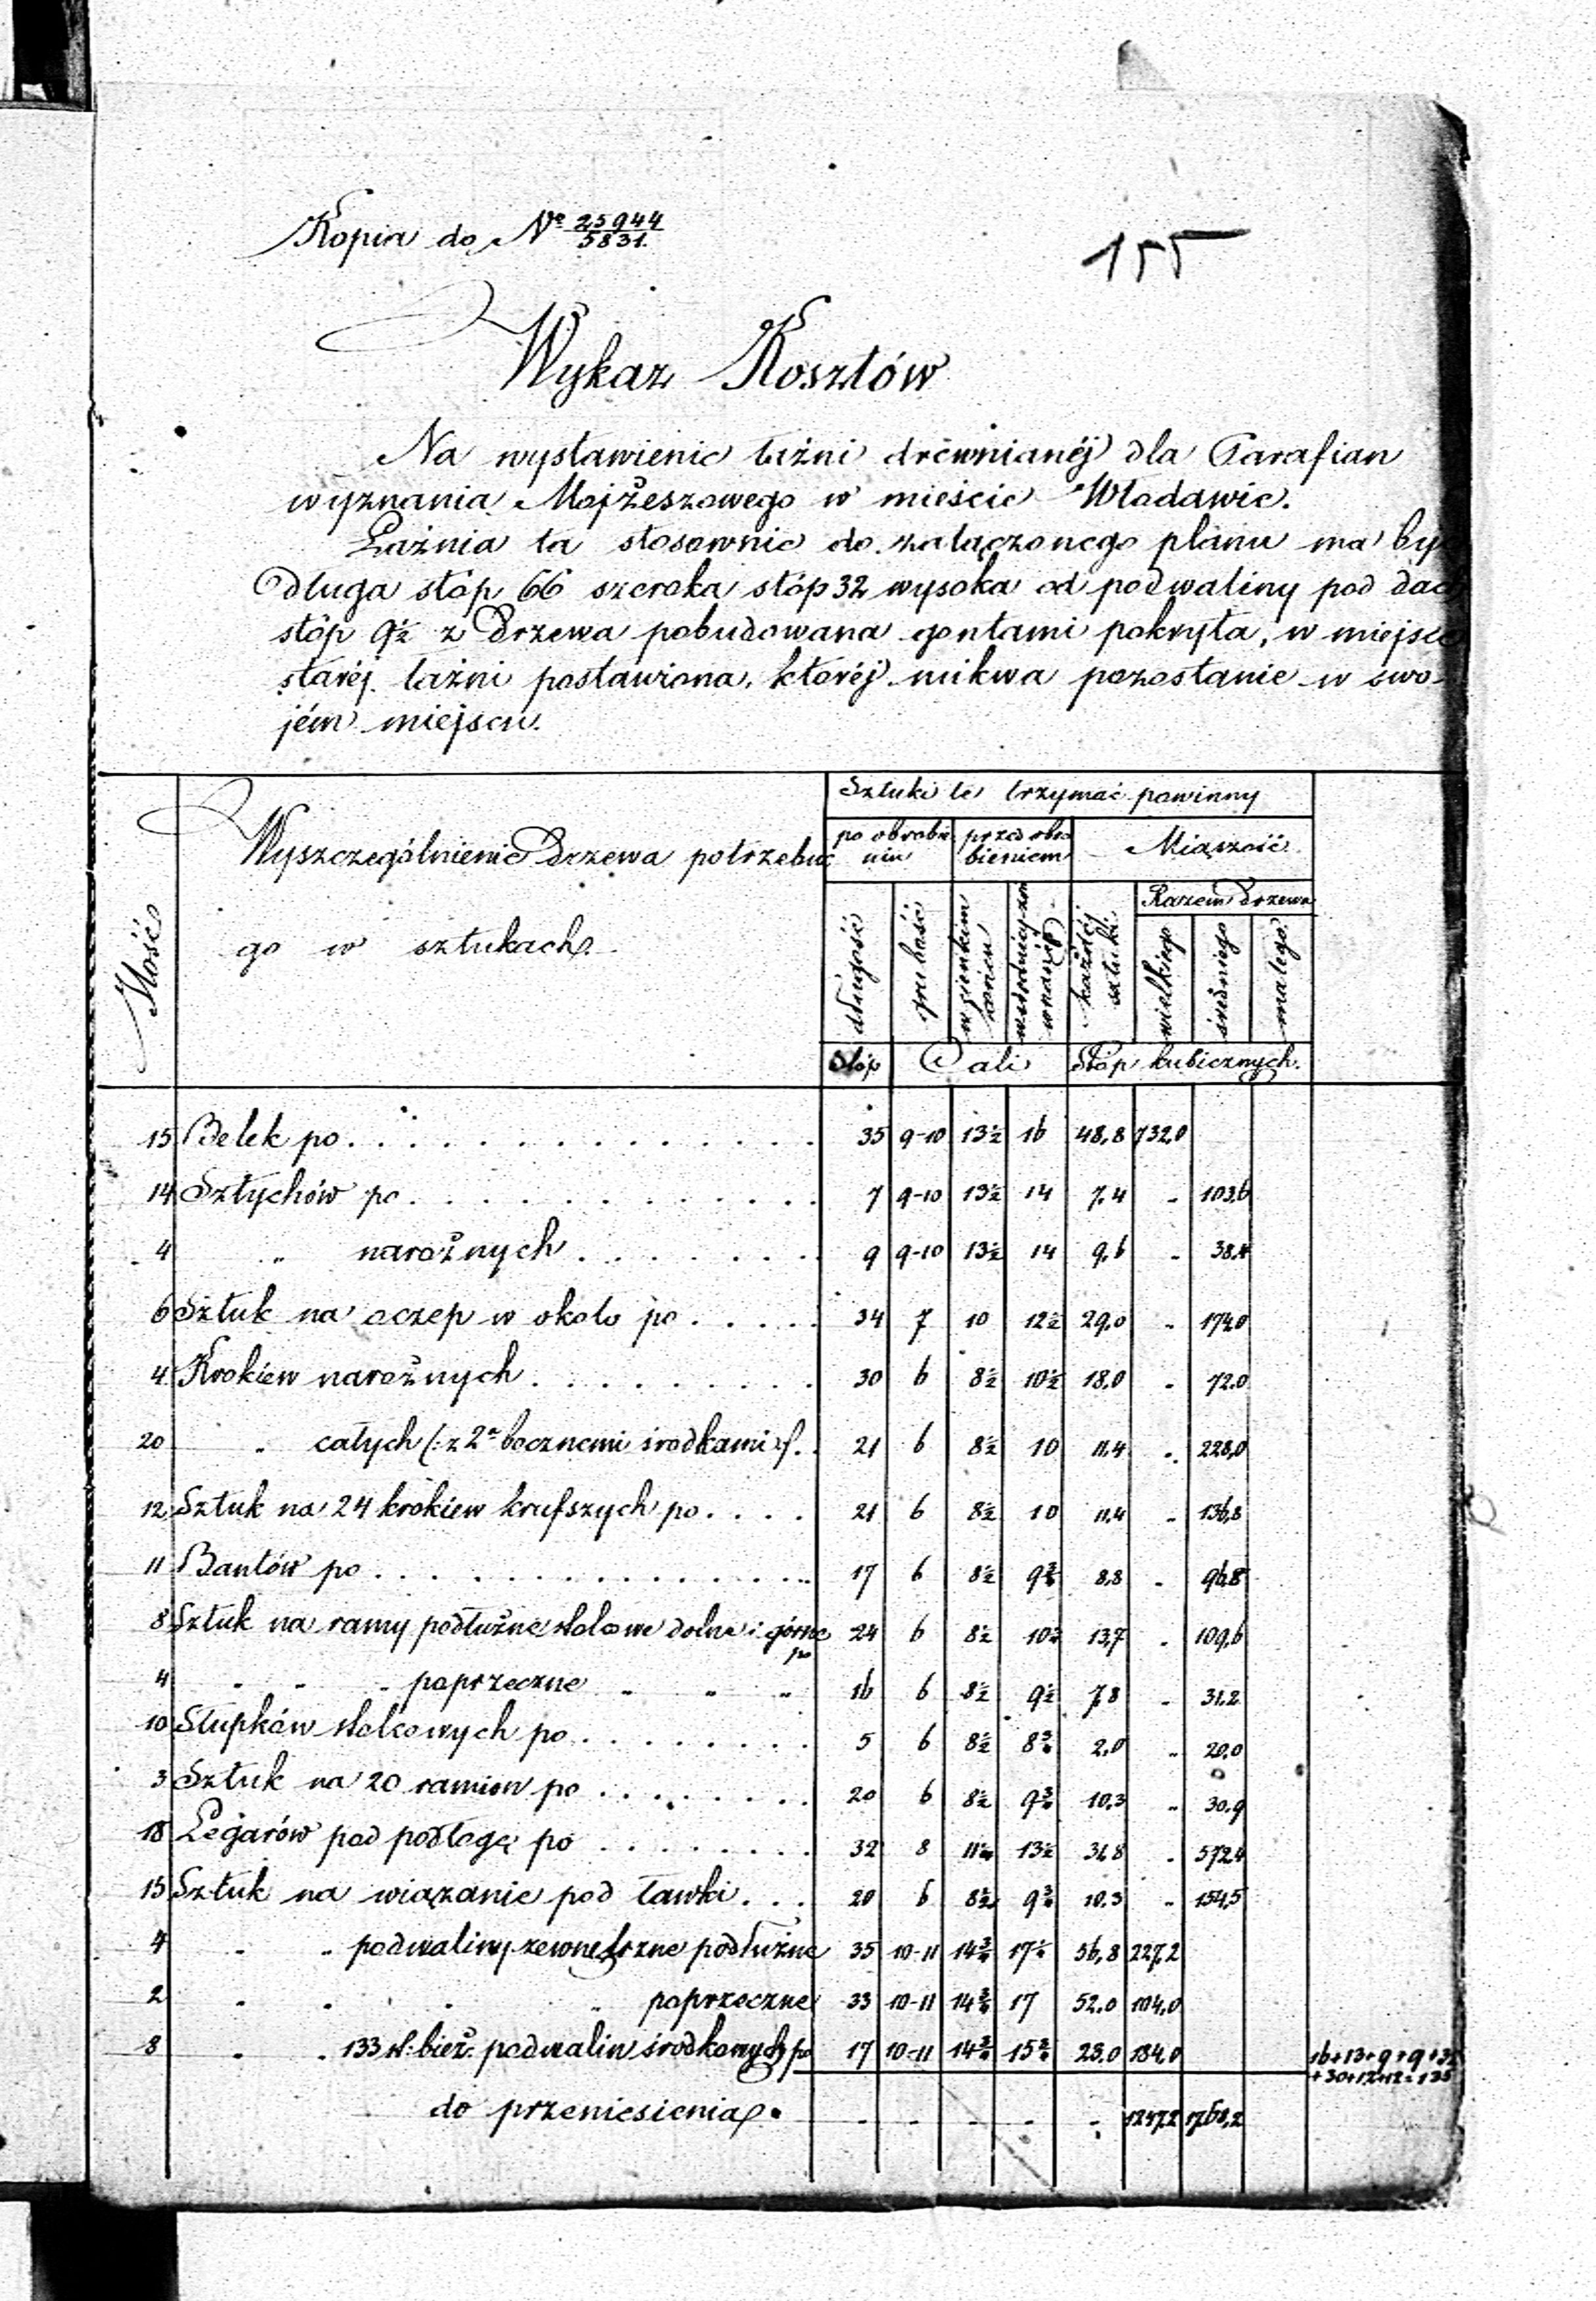 Kopia do № 25944/5831.
155
Wykaz Kosztów
Na wystawienie łaźni drewnianéj dla Parafian
wyznania Mojżeszowego w mieście Włodawie.
Łaźnia ta stosownie do załączonego planu ma by
długa stóp 66 szeroka stóp 32 wysoka od podwaliny pod dach
stóp 9½ z Drzewa pobudowana gontami pokryta, w miejscu
staréj łaźni postawiona, któréj mikwa pozostanie w swo-
jém miejscu.
Ilość
Wyszczególnienie Drzewa potrzebne
go w sztukach.
Sztuki te trzymać powinny
po obrobie
niu
przed obro
bieniem
Miąższość
Razem Drzewa
długość
grubość
w cienkim końcu
każdéj sztuki
wielkiego
średniego
małego.
Stóp
Cali
Stóp kubicznych.
15 Belek po . . . 35 9-10 13½ 16 48,8 732,0
14 Sztychów po . . . 7 9-10 13½ 14 7,4 " 103,6
4 " narożnych . . . 9 9-10 13½ 14 9,6 " 38,4
6 Sztuk na oczep w około po . . . 34 7 10 12½ 29,0 " 174,0
4 Krokiew narożnych . . . 30 6 8½ 10½ 18,0 " 72,0
20 " całych (: z 2ª bocznemi środkami :) . . 21 6 8½ 10 11,4 " 228,0
12 Sztuk na 24 krokiew krufszych po . . . . 21 6 8½ 10 11,4 " 136,8
11 Bantów po . . . 17 6 8½ 9¾ 8,8 " 96,8
8 Sztuk na ramy podłużne stolcowe dolne i górne po 24 6 8½ 13,7 " 109,6
4 " " " poprzeczne " " " 16 6 8½ 9½ 7,8 " 31,2
10 Słupków stolcowych po . . . 5 6 8½ 8¾ 2,0 " 20,0
3 Sztuk na 20 ramion po . . . 20 6 8½ 9¾ 10,3 " 30,9
18 Legarów pod podłogę po . . . 32 8 13½ 31,8 " 572,4
15 Sztuk na wiązanie pod ławki . . . 20 6 8½ 9¾ 10,3 " 154,5
4 " " podwaliny zewnętrzne podłużne 35 10-11 14¾ 56,8 227,2
2 " " " " poprzeczne 33 10-11 14¾ 17 52,0 104,0
8 " " 133 st: bież: podwalin środkowych po 17 10-11 14¾ 15¾ 23,0 184,0
16+13+9+9+32
+30+12+12=133
do przeniesienia . - - - - - 1247,2 1768,2